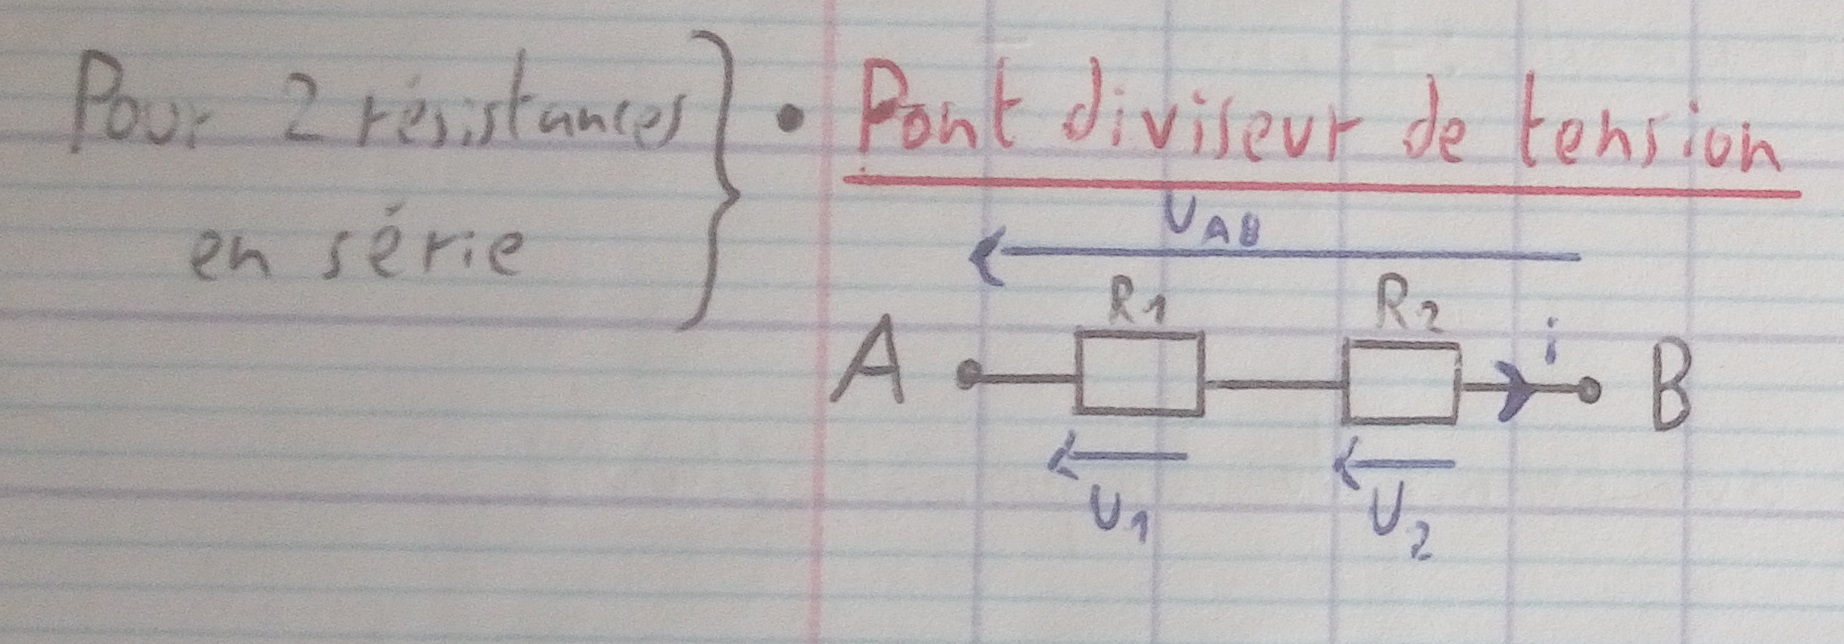 Pour 2 résistances
en série
• Pont diviseur de tension
U_AB
R1 R2
i
A B
U1 U2